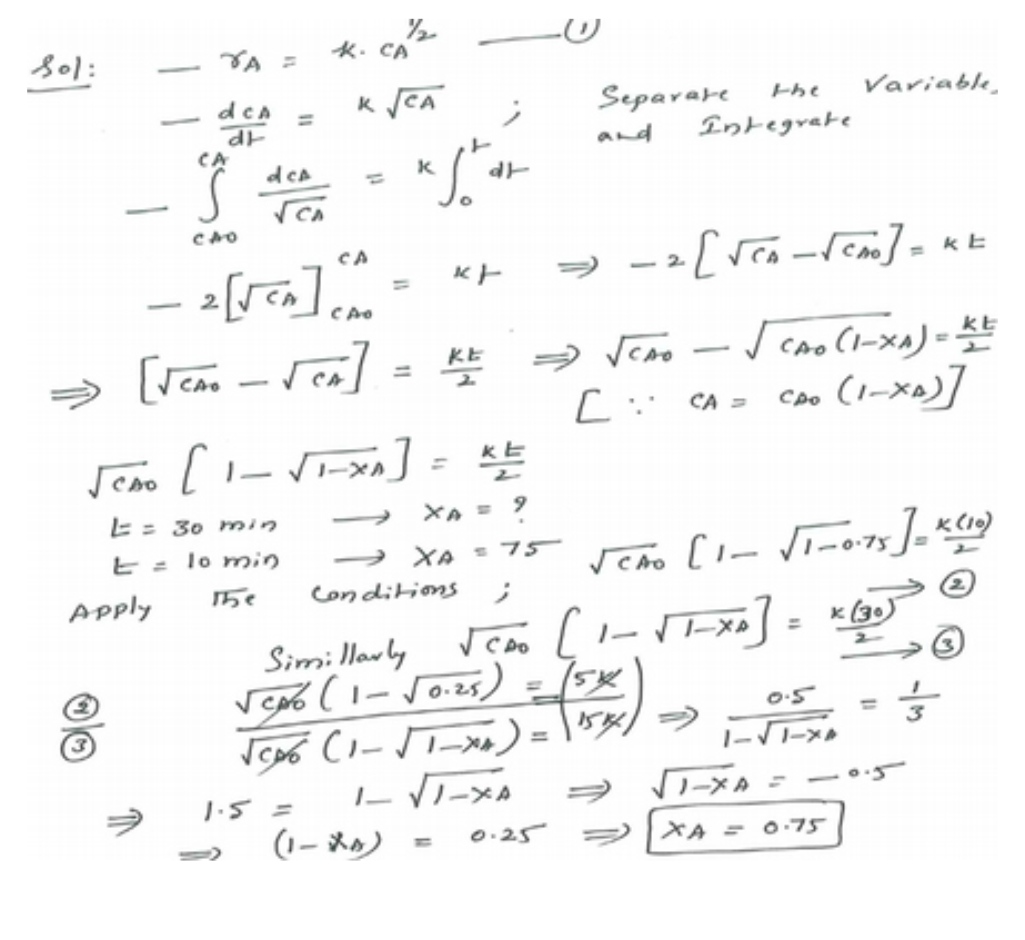 Sol: — rA = k. CA^1/2 —— (1)
— dCA/dt = k √CA ; Separate the Variable, and Integrate
— ∫_CAO^CA dCA/√CA = k ∫_0^t dt
— 2[√CA]_CAO^CA = kt ⇒ — 2[√CA — √CAO] = kt
⇒ [√CAO — √CA] = kt/2 ⇒ √CAO — √CAO(1-XA) = kt/2
[∵ CA = CAO (1-XA)]
√CAO [1 — √1-XA] = kt/2
t = 30 min → XA = ?
t = 10 min → XA = 75 √CAO [1 — √1-0.75] = k(10)/2 → (2)
Apply The Conditions ;
Simillarly √CAO [1 — √1-XA] = k(30)/2 → (3)
(2)/(3) √CAO (1 — √0.25) / √CAO (1 — √1-XA) = (5K/15K) ⇒ 0.5/1-√1-XA = 1/3
⇒ 1.5 = 1 — √1-XA ⇒ √1-XA = — 0.5
⇒ (1-XA) = 0.25 ⇒ XA = 0.75